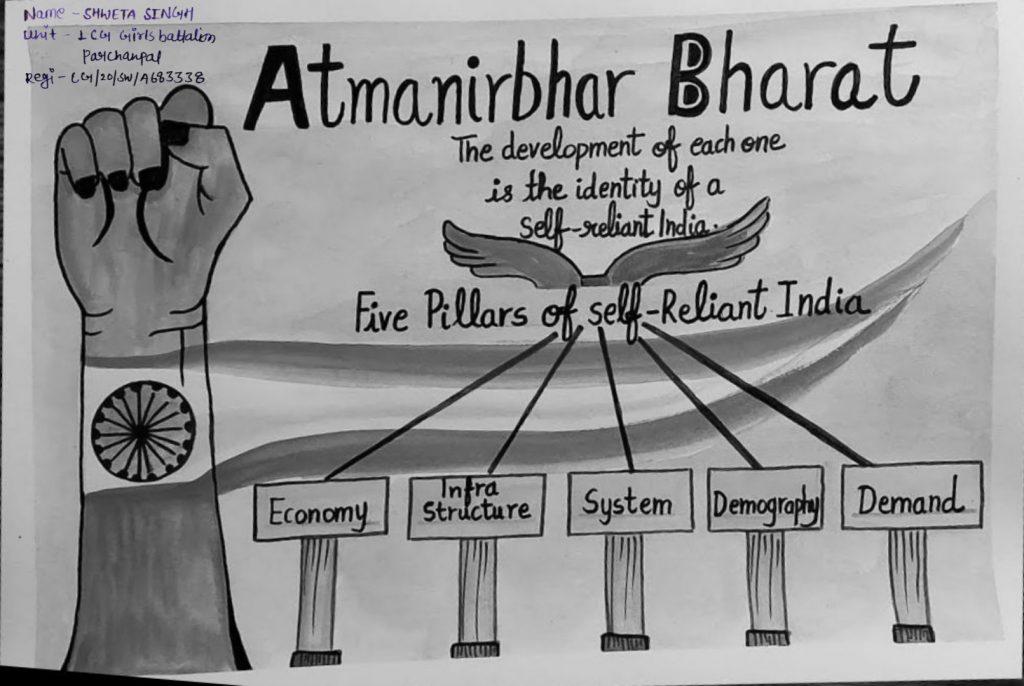 Name - SHWETA SINGH
Unit - 1 CG Girls battalion
Parchanpal
Regi - CG/20/SW/A683338
Atmanirbhar Bharat
The development of each one
is the identity of a
self-reliant India.
Five Pillars of self-Reliant India
Economy
Infra
Structure
System
Demography
Demand